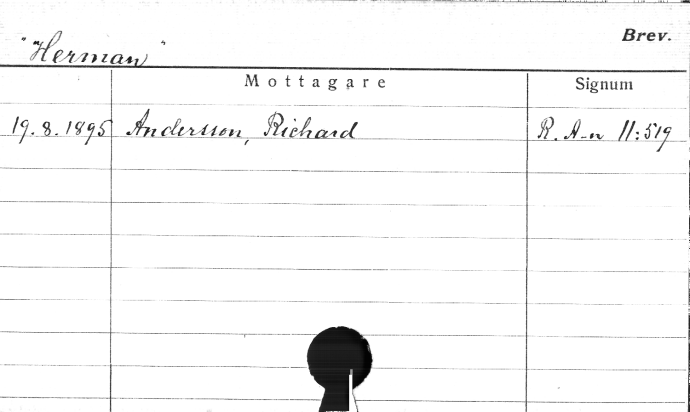 Brev.
"Herman"
Mottagare Signum
19.8.1895 Andersson, Richard R. A-n 11:519